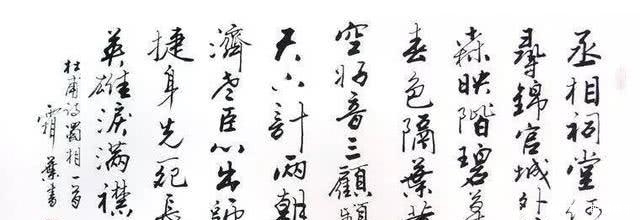 丞相祠堂何
尋錦官城外
森映階碧草
春色隔葉黃
空好音三顧頻
天下計兩朝
濟老臣心出師
捷身先死長
英雄淚滿襟
杜甫詩蜀相一首
霜葉書